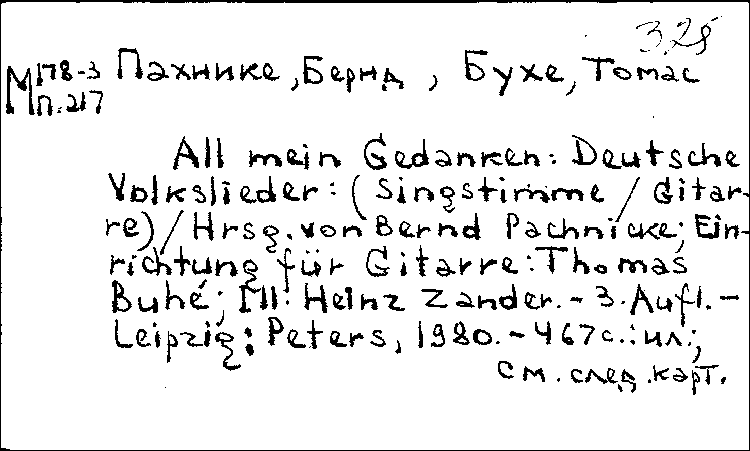 3,25
М 178-3 Пахнике, Бернд, Бухе, Томас
П.217
All mein Gedanken: Deutsche
Volkslieder: (Singstimme / Gitar-
re) / Hrsg. von Bernd Pachnicke; Ein-
richtung für Gitarre: Thomas
Buhé; Ill: Heinz Zander. - 3. Aufl. -
Leipzig: Peters, 1980. - 467 с.: ил.;
см. след. карт.